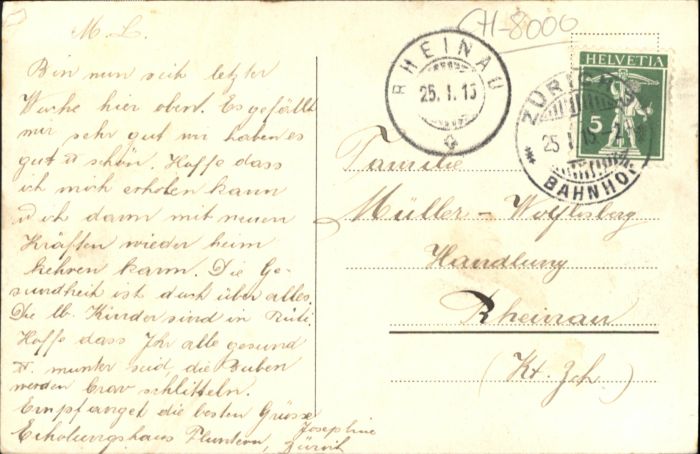 CH-8000
M. L.
Bin nun seit letzter
Woche hier oben. Es gefällt
mir sehr gut wir haben es
gut u schön. Hoffe dass
ich mich erholen kann
u ich dann mit neuen
Kräften wieder heim
kehren kann. Die Ge-
sundheit ist doch über alles.
Die lb. Kinder sind in Rüti.
Hoffe dass Ihr alle gesund
u. munter seid, die Buben
werden brav schlitteln.
Empfanget die besten Grüsse
Josephine
Erholungshaus Fluntern, Zürich
RHEINAU
25. I. 15
HELVETIA
5
ZÜRICH
25 I 15
BAHNHOF
Familie
Müller - Wolfensberg
Handlung
Rheinau
(Kt. Zch.)